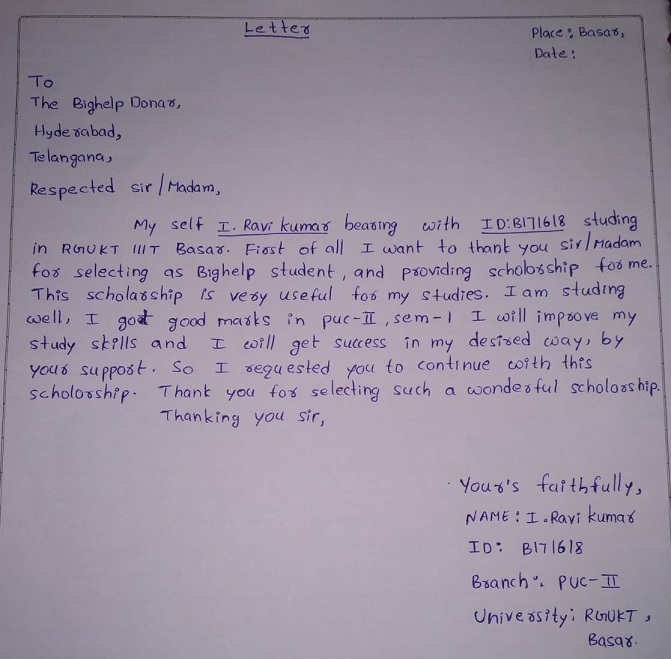 Letter
Place: Basar,
Date:
To
The Bighelp Donar,
Hyderabad,
Telangana,
Respected sir/Madam,
My self I. Ravi kumar bearing with ID:B171618 studing
in RGUKT IIIT Basar. First of all I want to thank you sir/Madam
for selecting as Bighelp student, and providing scholorship for me.
This scholarship is very useful for my studies. I am studing
well, I got good marks in puc-II, sem-1 I will improve my
study skills and I will get success in my desired way, by
your support. So I requested you to continue with this
scholorship. Thank you for selecting such a wonderful scholorship.
Thanking you sir,
Your's faithfully,
NAME: I.Ravi kumar
ID: B171618
Branch: PUC-II
University: RGUKT,
Basar.